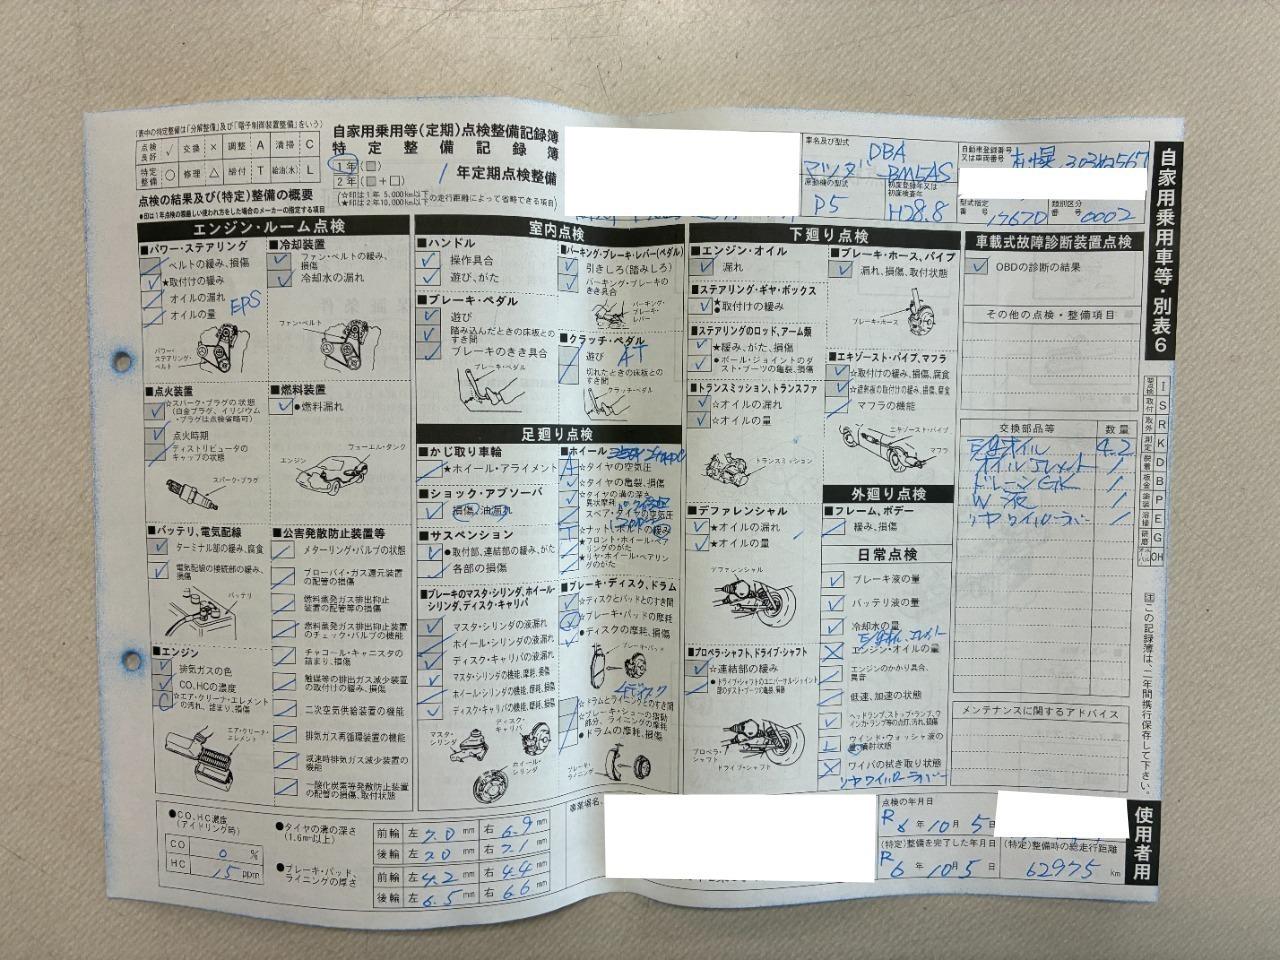 (表中の特定整備は「分解整備」及び「電子制御装置整備」をいう)
点検良好 ✓ 交換 × 調整 A 清掃 C
特定整備 ○ 修理 △ 締付 T 給油(水) L
点検の結果及び(特定)整備の概要
●印は1年点検の標準しい使われ方をした場合のメーカーの指定する項目
自家用乗用等(定期)点検整備記録簿
特定整備記録簿
1年
2年
1年定期点検整備
(☆印は1年 5,000km以下
★印は2年10,000km以下の走行距離によって省略できる項目)
車名及び型式
DBA
マツダ BM5AS
原動機の型式
P5
初度登録年又は初度検査年
H28.8
自動車登録番号又は車両番号
札幌 303
型式指定番号
17670
類別区分番号
0002
自家用乗用車等・別表6
エンジン・ルーム点検
■パワー・ステアリング
ベルトの緩み、損傷
★取付けの緩み
オイルの漏れ
オイルの量
EPS
パワー・ステアリング・ベルト
■冷却装置
ファン・ベルトの緩み、損傷
冷却水の漏れ
ファン・ベルト
■点火装置
☆スパーク・プラグの状態
(白金プラグ、イリジウム・プラグは点検省略可)
点火時期
ディストリビュータのキャップの状態
スパーク・プラグ
■燃料装置
●燃料漏れ
フューエル・タンク
エンジン
■バッテリ、電気配線
ターミナル部の緩み、腐食
電気配線の接続部の緩み、損傷
バッテリ
■エンジン
排気ガスの色
CO、HCの濃度
☆エア・クリーナ・エレメントの汚れ、詰まり、損傷
エア・クリーナ・エレメント
■公害発散防止装置等
メターリング・バルブの状態
ブローバイ・ガス還元装置の配管の損傷
燃料蒸発ガス排出抑止装置の配管等の損傷
燃料蒸発ガス排出抑止装置のチェック・バルブの機能
チャコール・キャニスタの詰まり、損傷
触媒等の排出ガス減少装置の取付けの緩み、損傷
二次空気供給装置の機能
排気ガス再循環装置の機能
減速時排気ガス減少装置の機能
一酸化炭素等発散防止装置の配管の損傷、取付状態
室内点検
■ハンドル
操作具合
遊び、がた
■ブレーキ・ペダル
遊び
踏み込んだときの床板とのすき間
ブレーキのきき具合
ブレーキ・ペダル
■パーキング・ブレーキ・レバー(ペダル)
引きしろ(踏みしろ)
パーキング・ブレーキのきき具合
パーキング・ブレーキ・レバー
■クラッチ・ペダル
遊び AT
切れたときの床板とのすき間
クラッチ・ペダル
足廻り点検
■かじ取り車輪
★ホイール・アライメント
■ショック・アブソーバ
損傷、油漏れ
■サスペンション
●取付部、連結部の緩み、がた
各部の損傷
■ブレーキのマスタ・シリンダ、ホイール・シリンダ、ディスク・キャリパ
マスタ・シリンダの液漏れ
ホイール・シリンダの液漏れ
ディスク・キャリパの液漏れ
マスタ・シリンダの機能、摩耗、損傷
ホイール・シリンダの機能、摩耗、損傷
ディスク・キャリパの機能、摩耗、損傷
マスタ・シリンダ
ディスク・キャリパ
ホイール・シリンダ
■ホイール
☆タイヤの空気圧
☆タイヤの亀裂、損傷
☆タイヤの溝の深さ、異状摩耗
スペア・タイヤの空気圧
☆ナット、ボルトの緩み
★フロント・ホイール・ベアリングのがた
★リヤ・ホイール・ベアリングのがた
■ブレーキ・ディスク、ドラム
☆ディスクとパッドとのすき間
☆ブレーキ・パッドの摩耗
●ディスクの摩耗、損傷
ブレーキ・パッド
4ディスク
☆ドラムとライニングとのすき間
☆ブレーキ・シューの摺動部分、ライニングの摩耗
●ドラムの摩耗、損傷
ブレーキ・ライニング
下廻り点検
■エンジン・オイル
漏れ
■ステアリング・ギヤ・ボックス
★取付けの緩み
■ステアリングのロッド、アーム類
★緩み、がた、損傷
●ボール・ジョイントのダスト・ブーツの亀裂、損傷
■トランスミッション、トランスファ
☆オイルの漏れ
☆オイルの量
トランスミッション
■デファレンシャル
★オイルの漏れ
★オイルの量
デファレンシャル
■プロペラ・シャフト、ドライブ・シャフト
☆連結部の緩み
●ドライブ・シャフトのユニバーサル・ジョイント部のダスト・ブーツの亀裂、損傷
プロペラ・シャフト
ドライブ・シャフト
■ブレーキ・ホース、パイプ
漏れ、損傷、取付状態
ブレーキ・ホース
■エキゾースト・パイプ、マフラ
☆取付けの緩み、損傷、腐食
☆遮熱板の取付けの緩み、損傷、腐食
マフラの機能
エキゾースト・パイプ
マフラ
外廻り点検
■フレーム、ボデー
緩み、損傷
日常点検
ブレーキ液の量
バッテリ液の量
冷却水の量
エンジン・オイルの量
エンジンのかかり具合、異音
低速、加速の状態
ヘッドランプ、ストップ・ランプ、ウインカ・ランプ等の点灯、汚れ、損傷
ウインド・ウォッシャ液の量、噴射状態
ワイパの拭き取り状態
リヤワイパーラバー
車載式故障診断装置点検
OBDの診断の結果
その他の点検・整備項目
交換部品等 数量
オイル 4.2
オイルエレメント 1
ドレーンGK 1
W液 1
リヤワイパーラバー 1
メンテナンスに関するアドバイス
点検 I
取付 S
取外 R
K
D
板金 B
塗装 P
溶接 E
研磨 G
OH
注 この記録簿は、二年間携行保存して下さい。
使用者用
●CO、HC濃度
(アイドリング時)
CO 0 %
HC 15 ppm
●タイヤの溝の深さ
(1.6mm以上)
前輪 左 7.0 mm 右 6.9 mm
後輪 左 7.0 mm 右 7.1 mm
●ブレーキ・パッド、ライニングの厚さ
前輪 左 4.2 mm 右 4.4 mm
後輪 左 6.5 mm 右 6.6 mm
事業場名
点検の年月日
R6年10月5日
(特定)整備を完了した年月日
R6年10月5日
(特定)整備時の総走行距離
62975 km